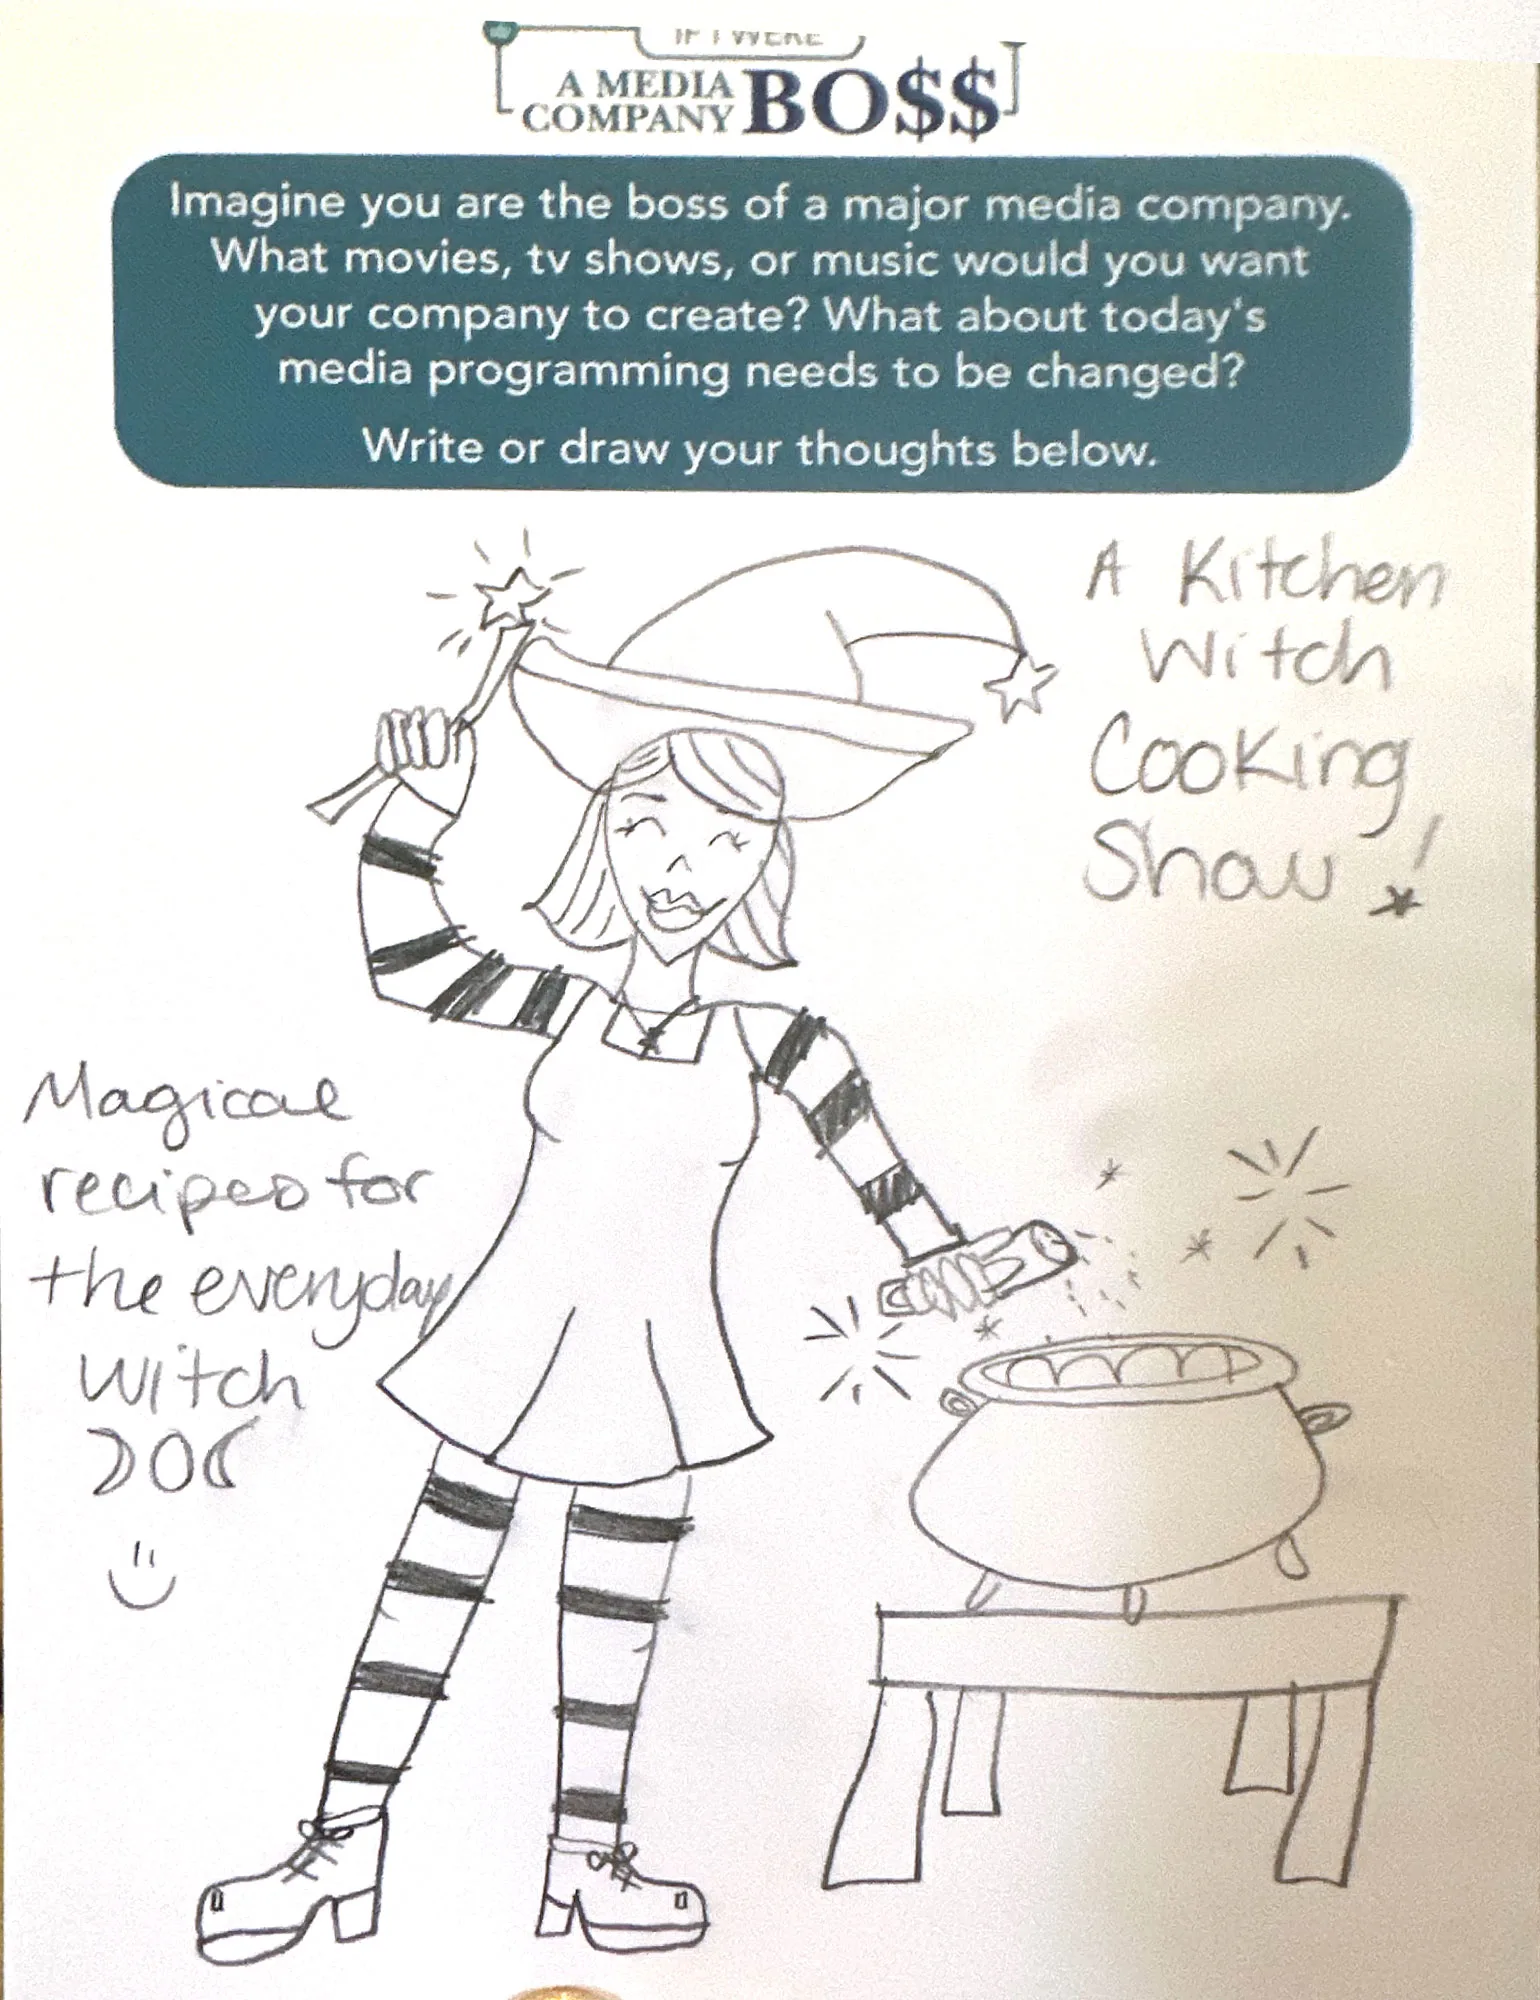 IF I WERE
A MEDIA
COMPANY BO$$
Imagine you are the boss of a major media company.
What movies, tv shows, or music would you want
your company to create? What about today's
media programming needs to be changed?
Write or draw your thoughts below.
A Kitchen
Witch
Cooking
Show!
Magical
recipes for
the everyday
witch